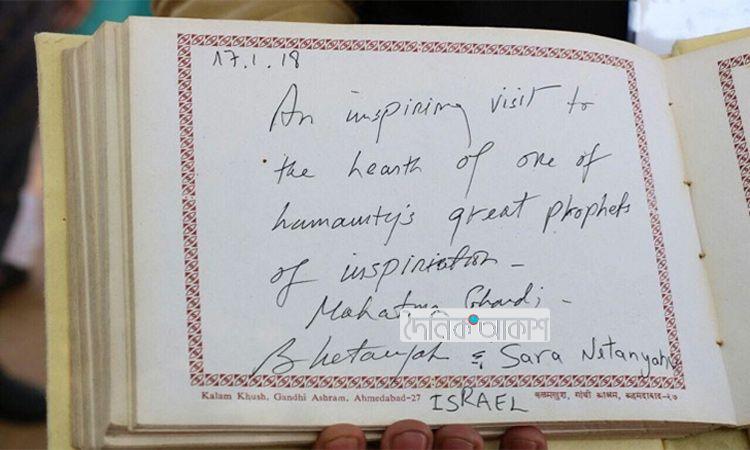 17.1.18
An inspiring visit to
the hearth of one of
humanity's great prophets
of inspiration -
Mahatma Ghandi -
দৈনিক আকাশ
B Netanyah & Sara Netanyahu
Kalam Khush, Gandhi Ashram, Ahmedabad-27
ISRAEL
कलमखुश, गांधी आश्रम, अहमदाबाद-२७